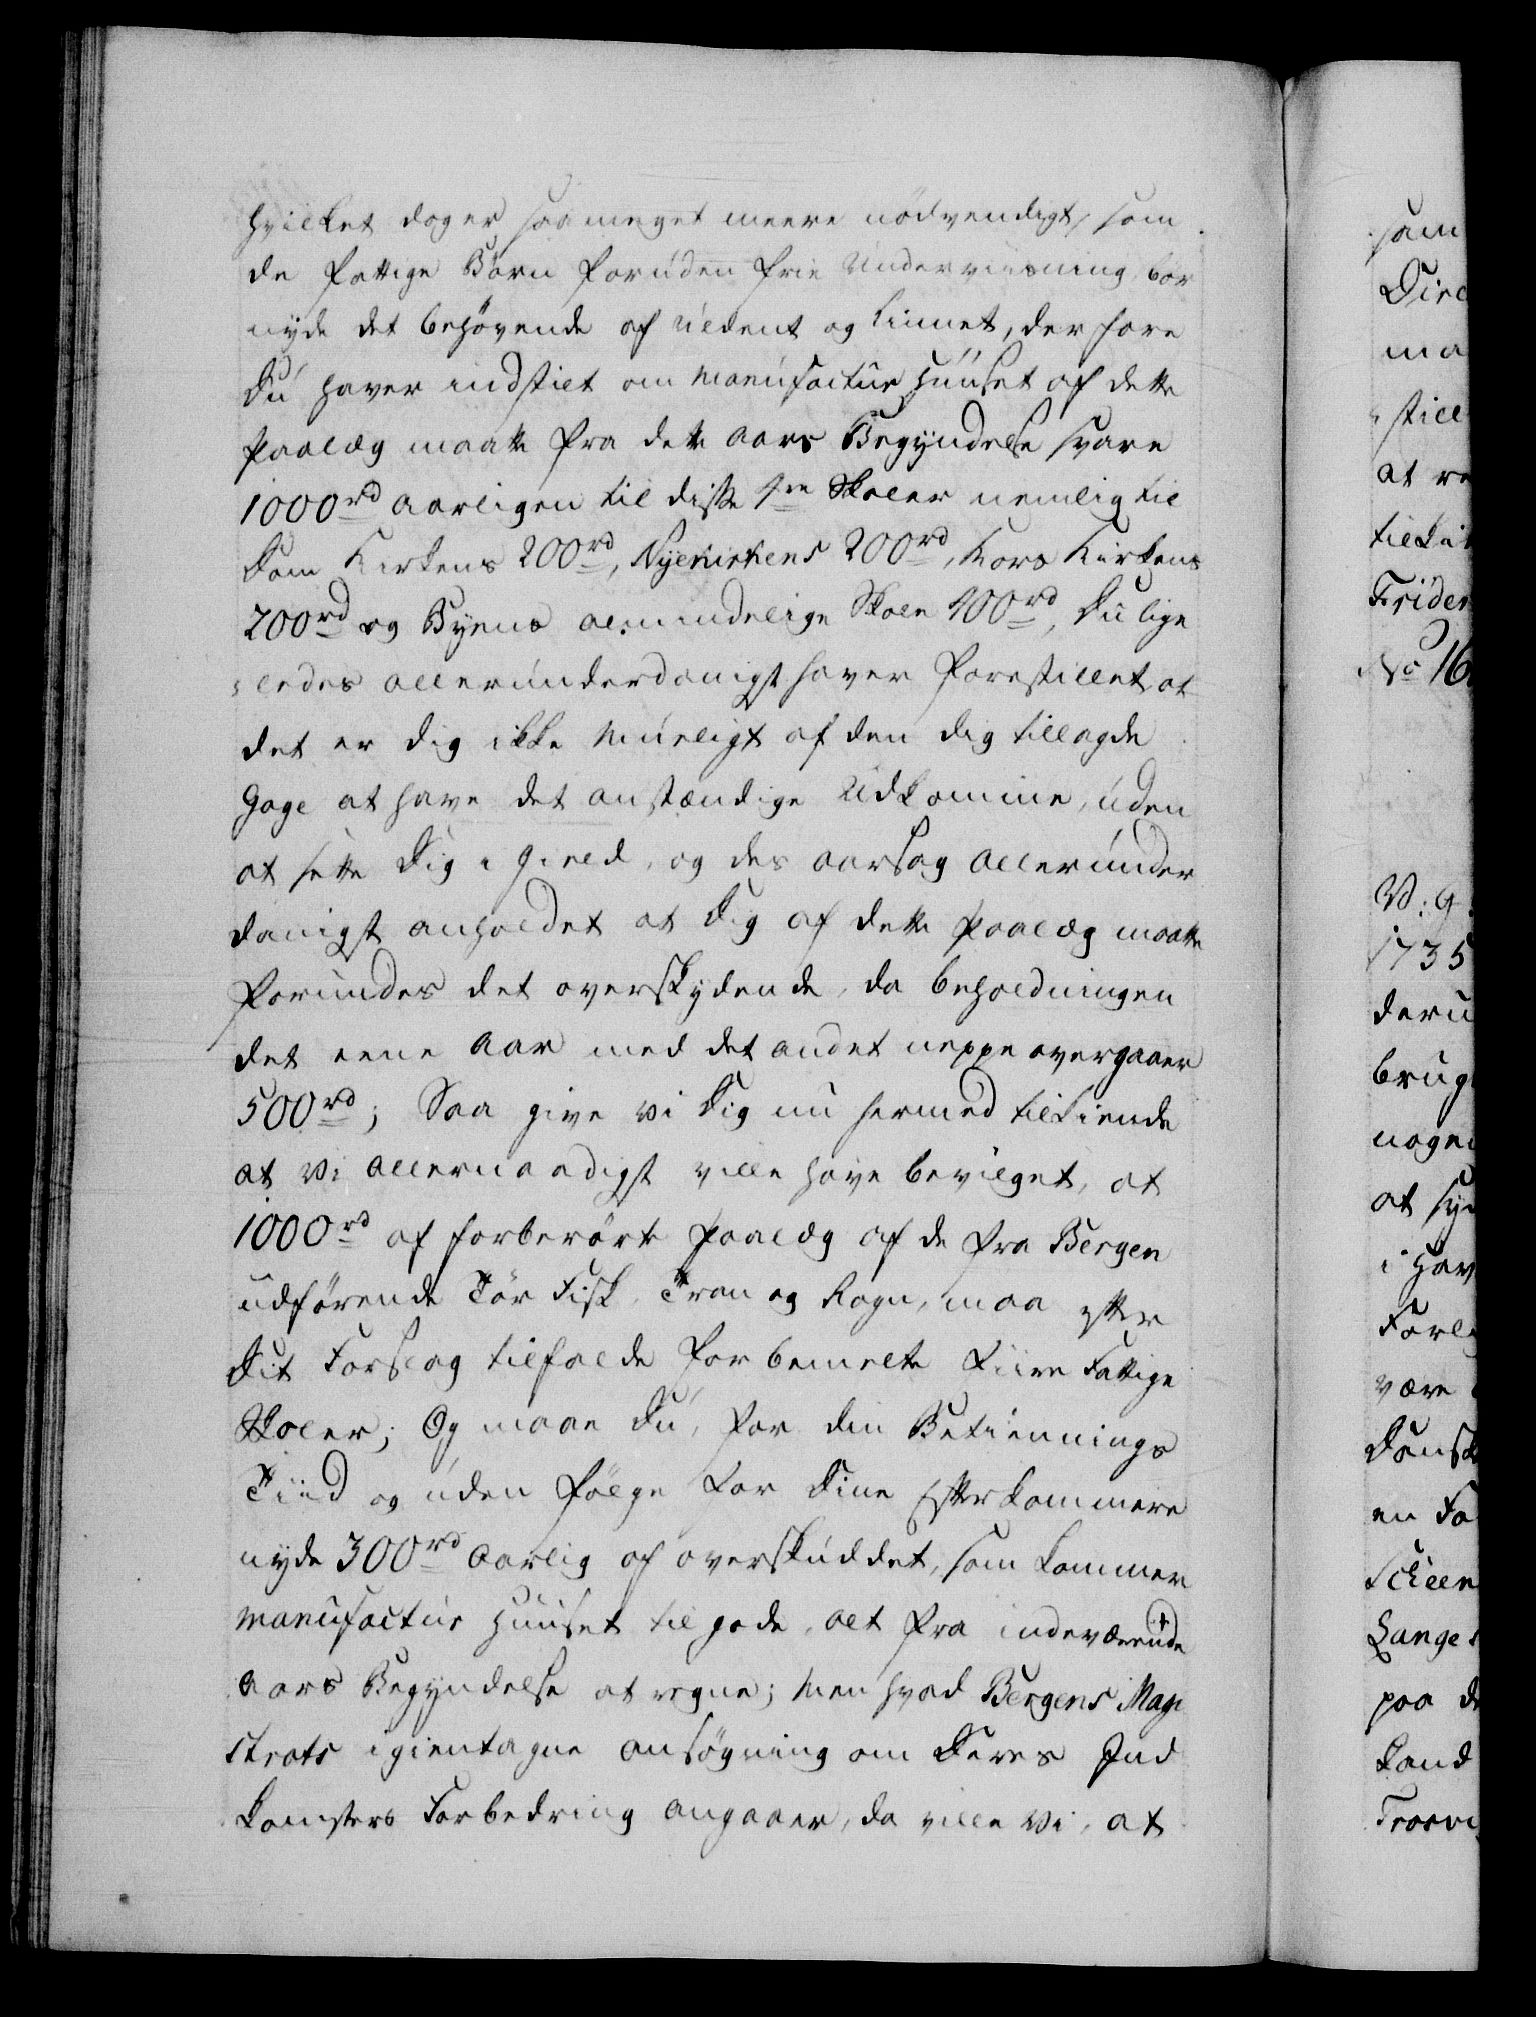 hvilket dog er saa meget meere nødvendigt, som
de fattige Børn foruden frie Underviisning, bør
nyde det behøvende af uldent og linnet, der fore
Du haver indstilt om Manufactur Huuset af dette
Paalæg maatte fra dette Aars Begyndelse svare
1000rd aarligen til disse 4re Skoler nemlig til
Dom Kirkens 200rd, Nyekirkens 200rd, Kors Kirkens
200rd og Byens almindelige Skole 400rd, Du lige
ledes allerunderdanigst haver forestillet at
det er dig ikke mueligt af den dig tillagde
Gage at have det anstændige Udkomme, uden
at sætte Dig i Gield, og des aarsag allerunder
danigst anholdet at Dig af dette Paalæg maatte
forundes det overskydende, da beholdningen
det eene Aar med det andet neppe overgaaer
500rd; Saa give vi Dig nu hermed tilkiende
at vi allernaadigst ville have bevilget, at
1000rd af forberørte Paalæg af de fra Bergen
udførende Tør Fisk, Tran og Rogn, maa efter
Dit Forslag tilfalde forbemelte Fiire Fattige
Skoler; Og maae Du, for din Betiennings
Tiid og uden følge for Dine Efterkommere
nyde 300rd aarlig af overskuddet, som kommer
Manufactur Huuset til gode, alt fra indeværende
Aars Begyndelse at regne; Men hvad Bergens Magi
strats igientagne ansøgning om Deres Ind
komsters Forbedring angaaer, da ville Vi, at
som
Dire
ma
still
at re
tilki
Frider
No 16
V: G:
1735
deru
brug
noge
at sy
i Hav
Forle
være
Dansk
en Fo
Scheen
Lange
paa d
Land